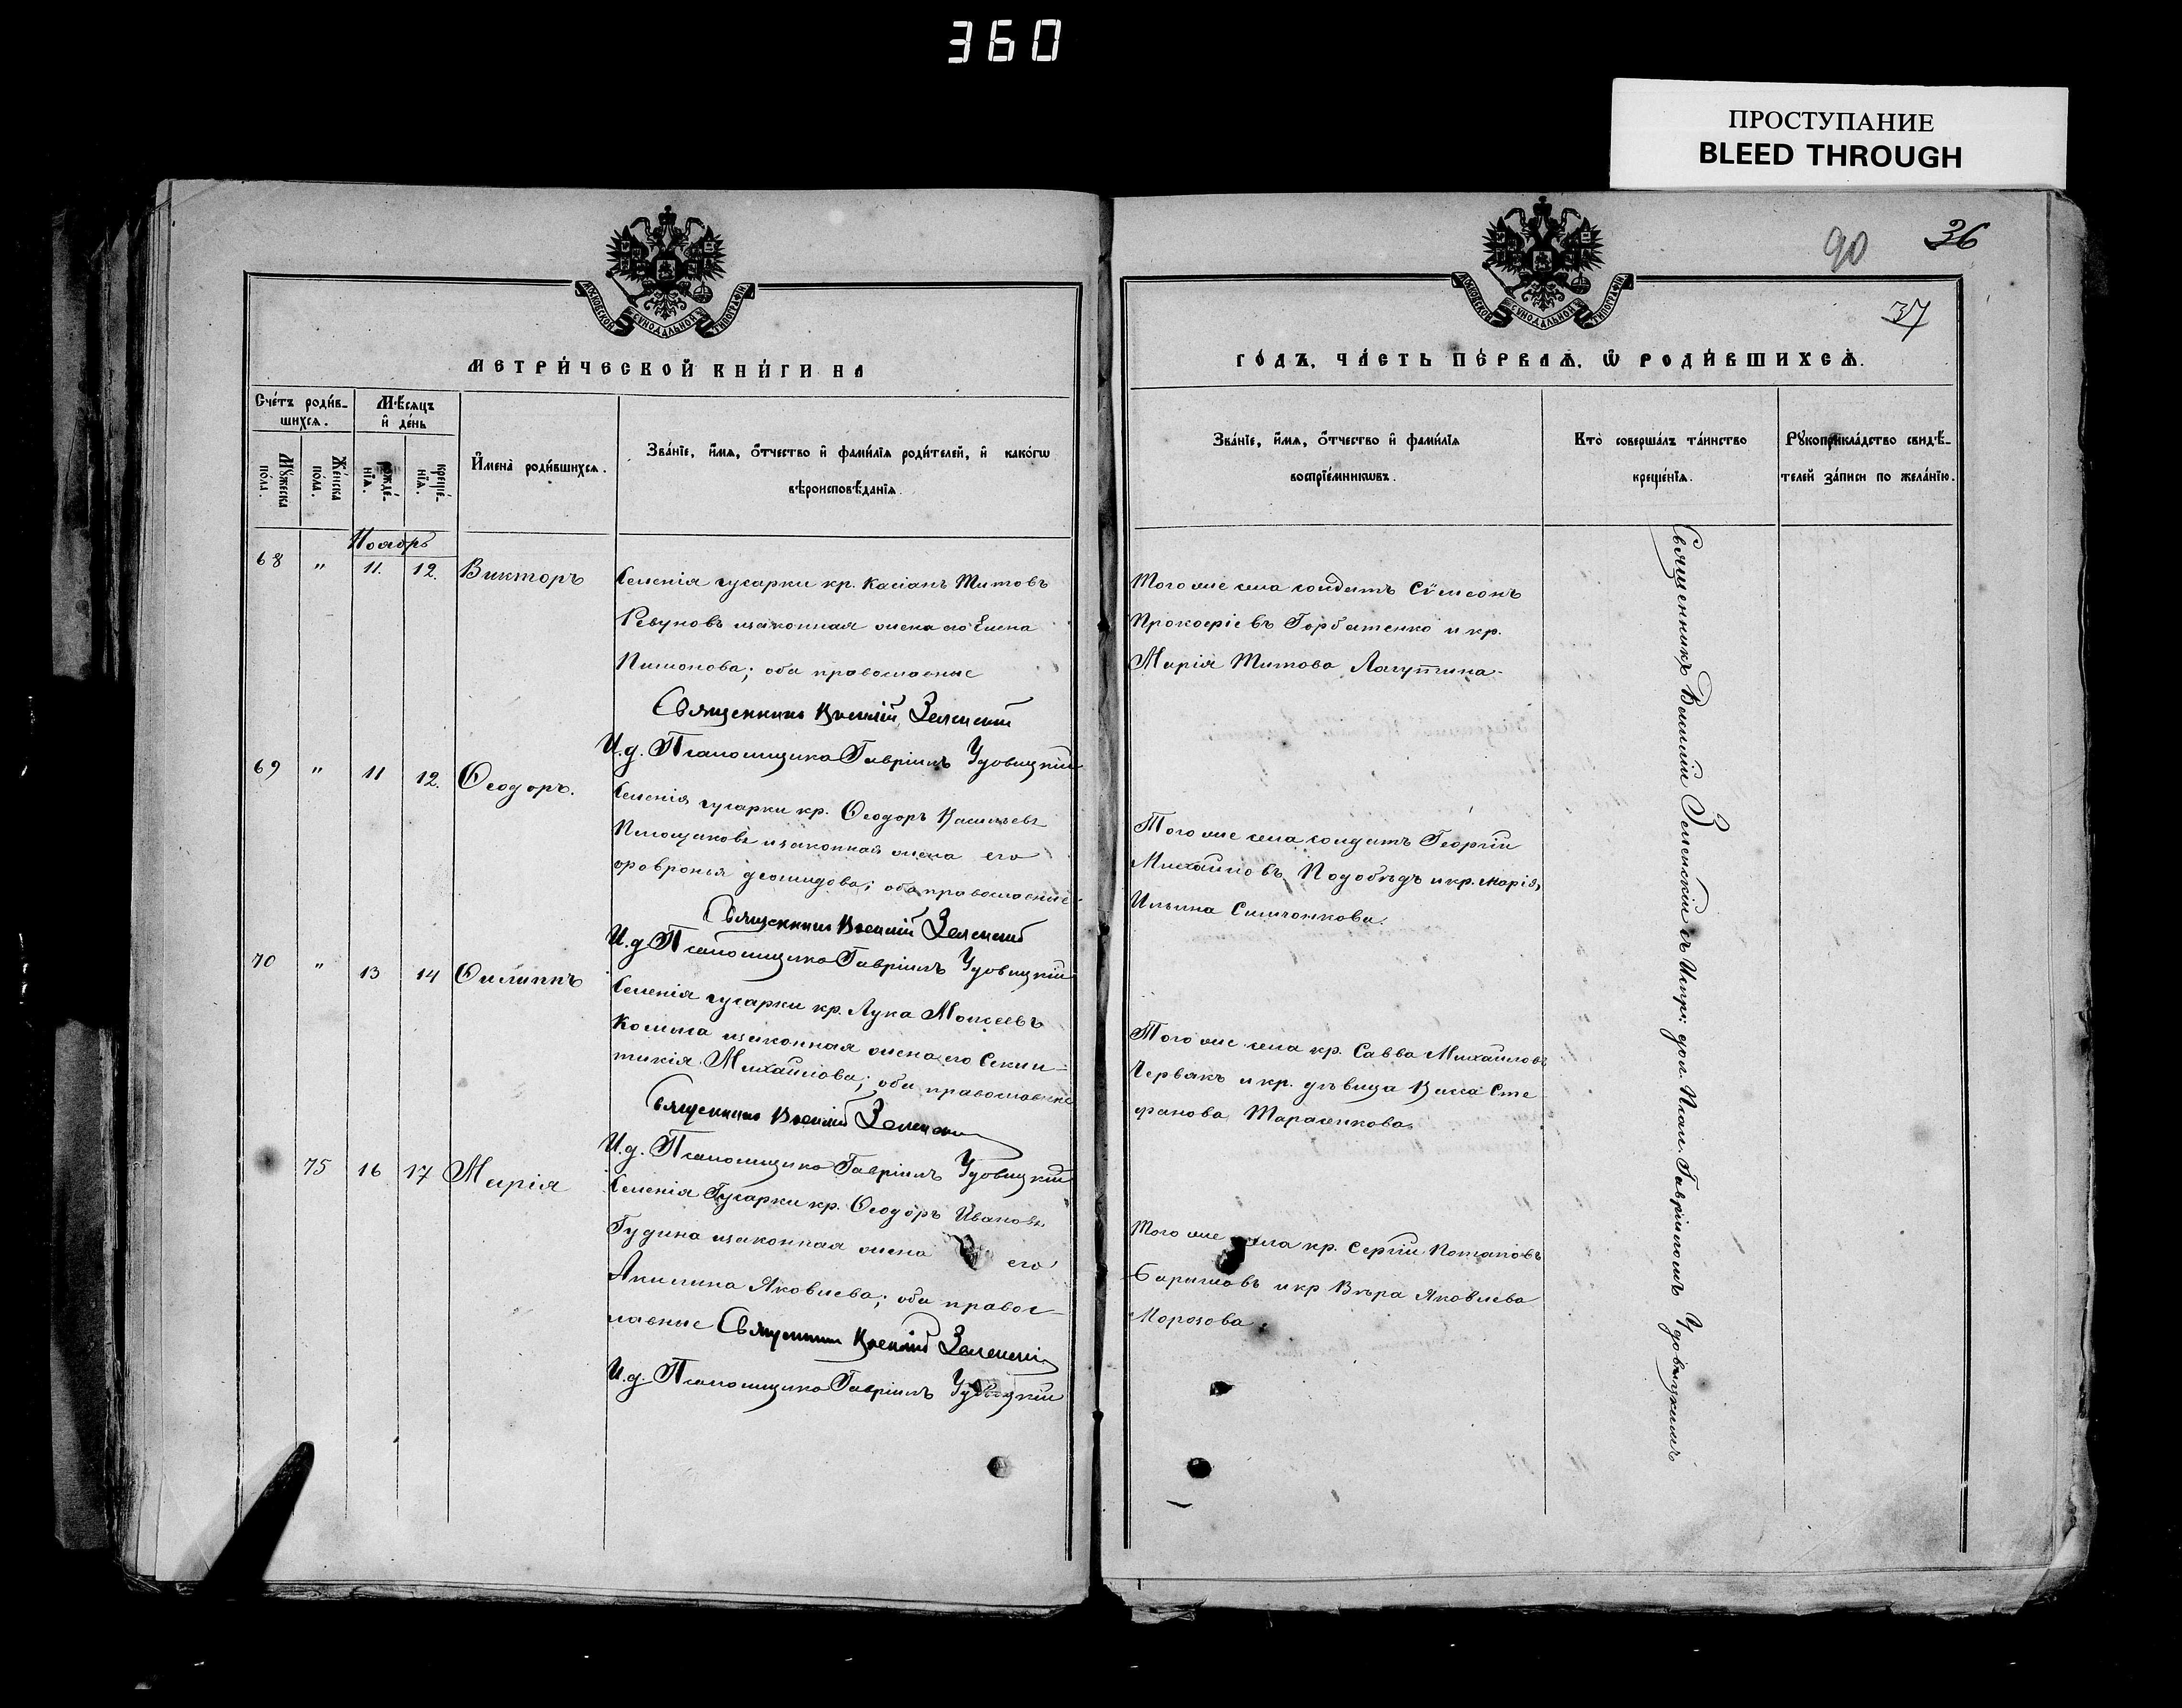 360
ПРОСТУПАНИЕ
BLEED THROUGH
90
36
37
МОСКОВСКОЙ СѴНОДАЛЬНОЙ ТИПОГРАФІИ
МОСКОВСКОЙ СѴНОДАЛЬНОЙ ТИПОГРАФІИ
МЕТРИ́ЧЕСКОЙ КНИ́ГИ НА
ГО́ДЪ, ЧА́СТЬ ПЕ́РВАѦ, Ѡ҆ РОДИ́ВШИХСѦ.
Сче́тъ роди́в-
шихсѧ.
Мꙋ́жеска по́ла.
Же́нска по́ла.
Мѣ́сѧцъ
и҆ де́нь
рожде́-нїѧ.
креще́-нїѧ.
И҆мена̀ роди́вшихсѧ.
Зва́нїе, и҆́мѧ, ѻ҆́тчество и҆ фами́лїѧ роди́телей, и҆ како́гѡ
вѣроисповѣ́данїѧ.
Зва́нїе, и҆́мѧ, ѻ҆́тчество и҆ фами́лїѧ
воспрїе́мникѡвъ.
Кто̀ соверша́лъ та́инство
креще́нїѧ.
Рꙋкоприкла́дство свидѣ́-
телей за́писи по жела́нїю.
Ноябрь
68 " 11. 12. Викторъ
Селенія гусарки кр. Касіанъ Титовъ
Ревуновъ изаконная жена его Елена
оба православные
Священникъ Василій Зеленскій
И.д. Псаломщика Гавріилъ Удовицкій
Того же села солдатъ Сѵмеонъ
Прокофіевъ Горбатенко и кр.
Марія Титова Лагутина.
69 " 11 12. Ѳеодоръ.
Селенія гусарки кр. Ѳеодоръ Васильевъ
изаконная жена его
февронія демидова; оба православные
Священникъ Василій Зеленскій
И.д. Псаломщика Гавріилъ Удовицкій
Того же села солдатъ Георгій
Михайловъ Подобѣдъ и кр. Марія
Ильина
70 " 13 14 Филиппъ
Селенія гусарки кр. Лука Моисеевъ
изаконная жена его Секли-
тикія Михайлова; оба православные
Священникъ Василій Зеленскій
И.д. Псаломщика Гавріилъ Удовицкій
Того же села кр. Савва Михайловъ
Червякъ и кр. дѣвица Васса Сте
фанова Тарасенкова.
75 16 17 Марія
Селенія Гусарки кр. Ѳеодоръ Ивановъ
Гудина изаконная жена его
Акилина Яковлева; оба правос-
лавные Священникъ Василій Зеленскій
И.д. Псаломщика Гавріилъ Удовицкій
Того же села кр. Сергій Потаповъ
и кр Вѣра Яковлева
Морозова.
Священникъ Василій Зеленскій съ Испр: дол. Псал. Гавріиломъ Удовицкимъ